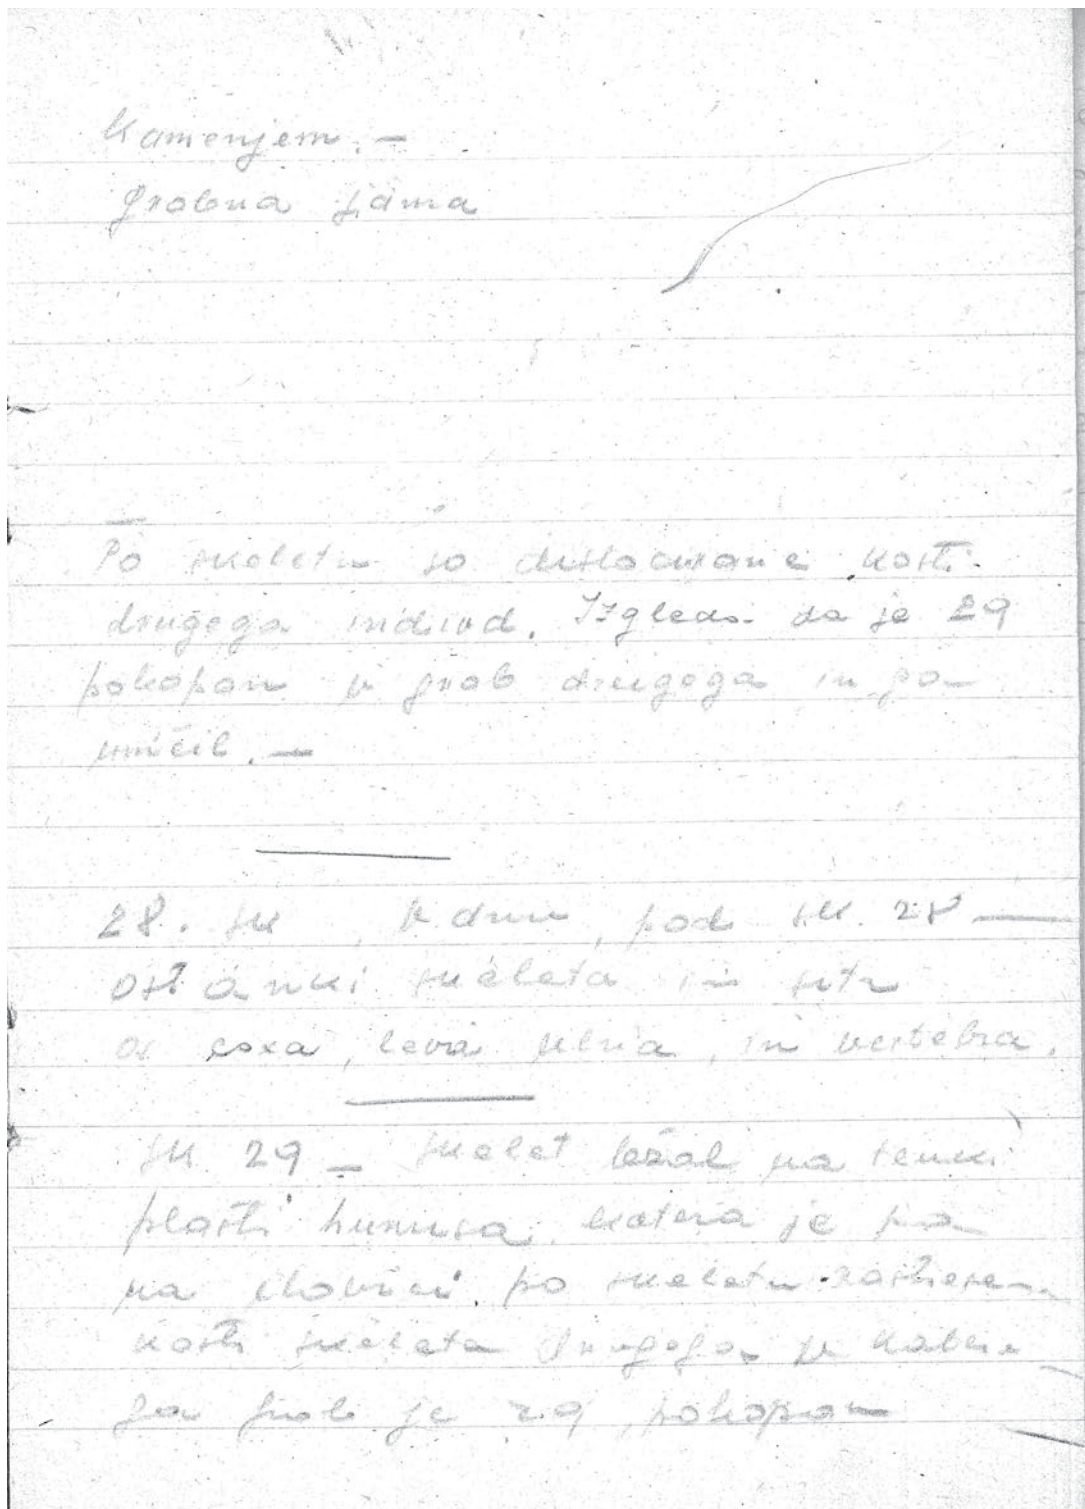 Kamenjem. –
grobna jama
Po skeletu so dislocirane kosti
drugega individ. Izgleda da je 29
pokopan v grob drugega in ga
uničil. –
28. sk , v dnu, pod sk. 28 —
ostanki skeleta in sit
os coxa, leva ulna, in vertebra.
sk 29 – skelet ležal na tenki
plasti humusa, katera je pa
na ilovici, po skeletu raztresene
kosti skeleta drugega v kater
ga grob je 29 pokopan